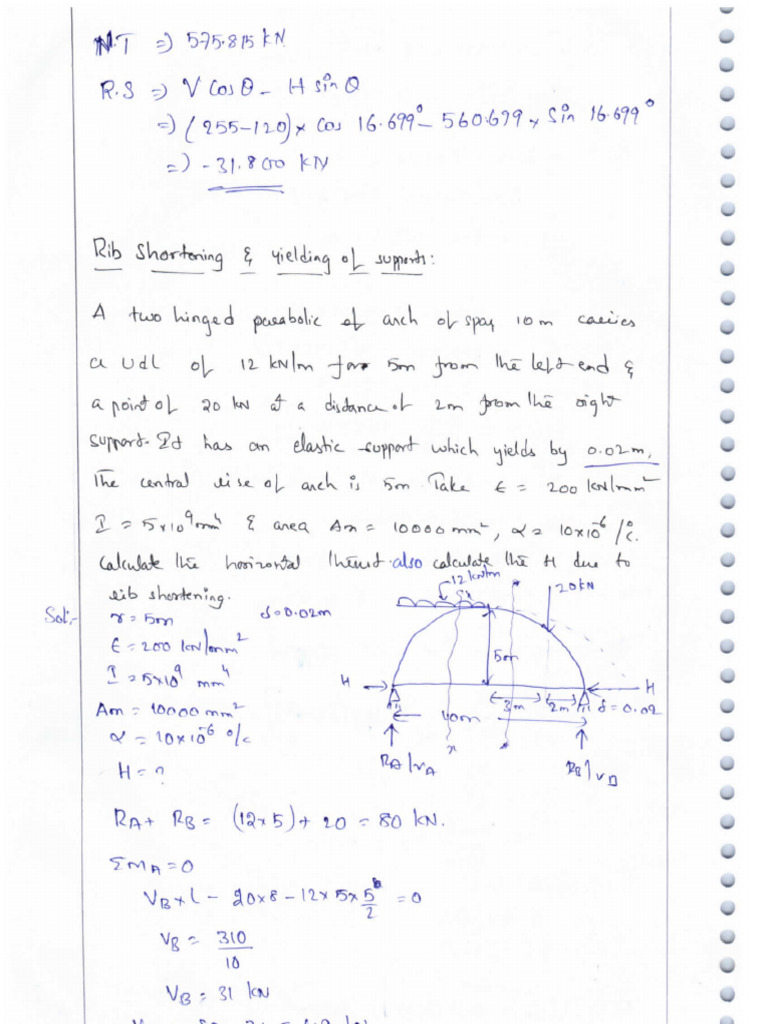 N.T ⇒ 575.815 kN
R.S ⇒ V cosθ - H sinθ
⇒ (255-120) × cos 16.699° - 560.679 × sin 16.699°
⇒ -31.800 kN
Rib shortening & yielding of supports:
A two hinged parabolic of arch of span 10m carries
a udl of 12 kN/m for 5m from the left end &
a point of 20 kN at a distance of 2m from the right
support. It has an elastic support which yields by 0.02m,
The central rise of arch is 5m. Take E = 200 kN/mm²
I = 5×10⁹mm⁴ & area Am = 10000 mm², α = 10×10⁻⁶ /°c.
Calculate the horizontal thrust also calculate the H due to
rib shortening.
Sol:-
r = 5m δ=0.02m
E = 200 kN/mm²
I = 5×10⁹ mm⁴
Am = 10000 mm²
α = 10×10⁻⁶ °/c
H = ?
12 kN/m
20kN
5m
H
H
3m
2m
δ=0.02
10m
RA/VA
RB/VB
x
RA + RB = (12×5) + 20 = 80 kN.
ΣMA=0
VB×L - 20×8 - 12×5×5/2 = 0
VB = 310/10
VB = 31 kN